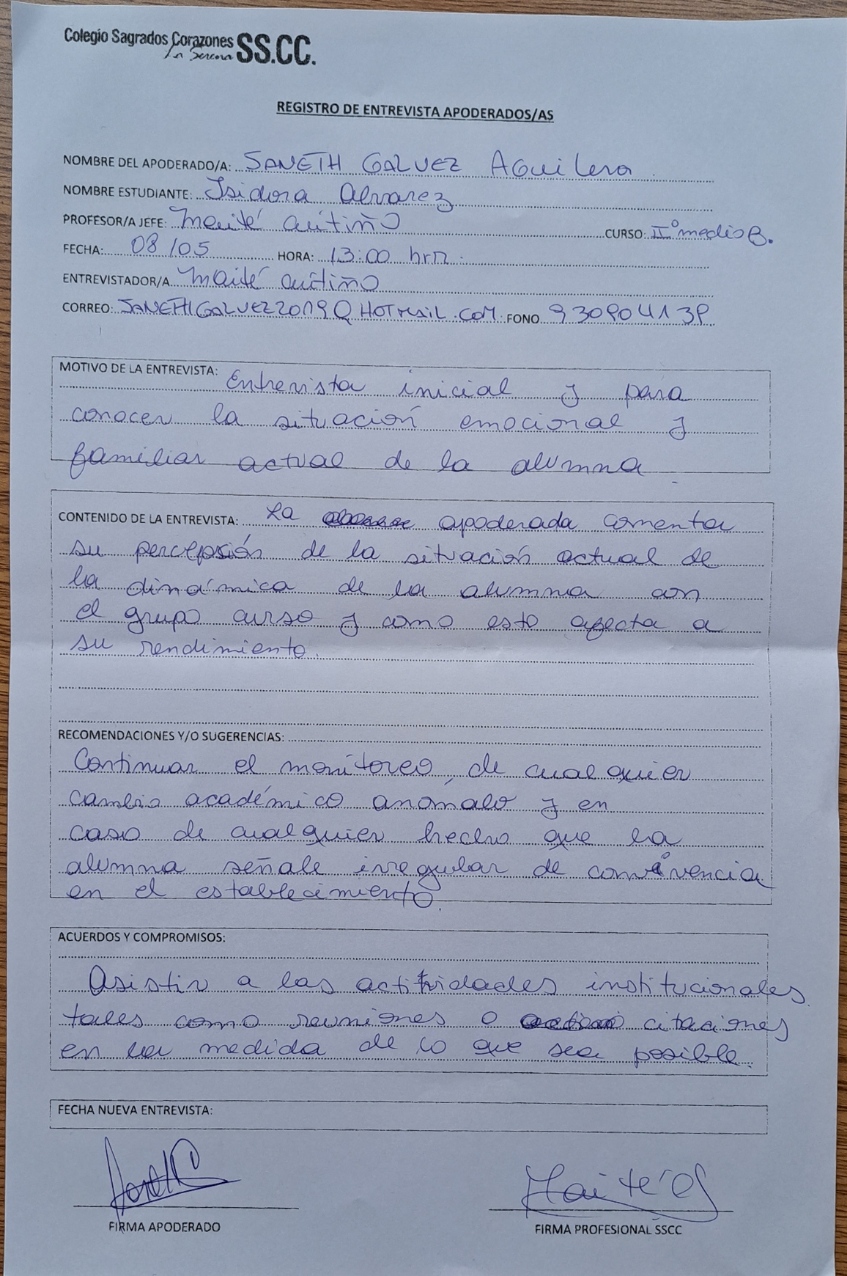 Colegio Sagrados Corazones SS.CC.
La Serena
REGISTRO DE ENTREVISTA APODERADOS/AS
NOMBRE DEL APODERADO/A: SANETH GALVEZ AGuilera
NOMBRE ESTUDIANTE: Isidora Alvarez
PROFESOR/A JEFE: Maité CURSO: IIº medio B.
FECHA: 08/05 HORA: 13:00 hrs.
ENTREVISTADOR/A Maité
CORREO: JANETHGALVEZ2019@HOTMAIL.COM FONO 930904139
MOTIVO DE LA ENTREVISTA: Entrevista inicial y para
conocer la situación emocional y
familiar actual de la alumna
CONTENIDO DE LA ENTREVISTA: La apoderada comenta
su percepsión de la situación actual de
la dinámica de la alumna con
el grupo curso y como esto afecta a
su rendimiento.
RECOMENDACIONES Y/O SUGERENCIAS:
Continuar el monitoreo, de cualquier
cambio académico anomalo y en
caso de cualquier hecho que la
alumna señale irregular de convivencia
en el establecimiento.
ACUERDOS Y COMPROMISOS:
Asistir a las actividades institucionales
tales como reuniones o citaciones
en la medida de lo que sea posible.
FECHA NUEVA ENTREVISTA:
Maité
FIRMA APODERADO
FIRMA PROFESIONAL SSCC